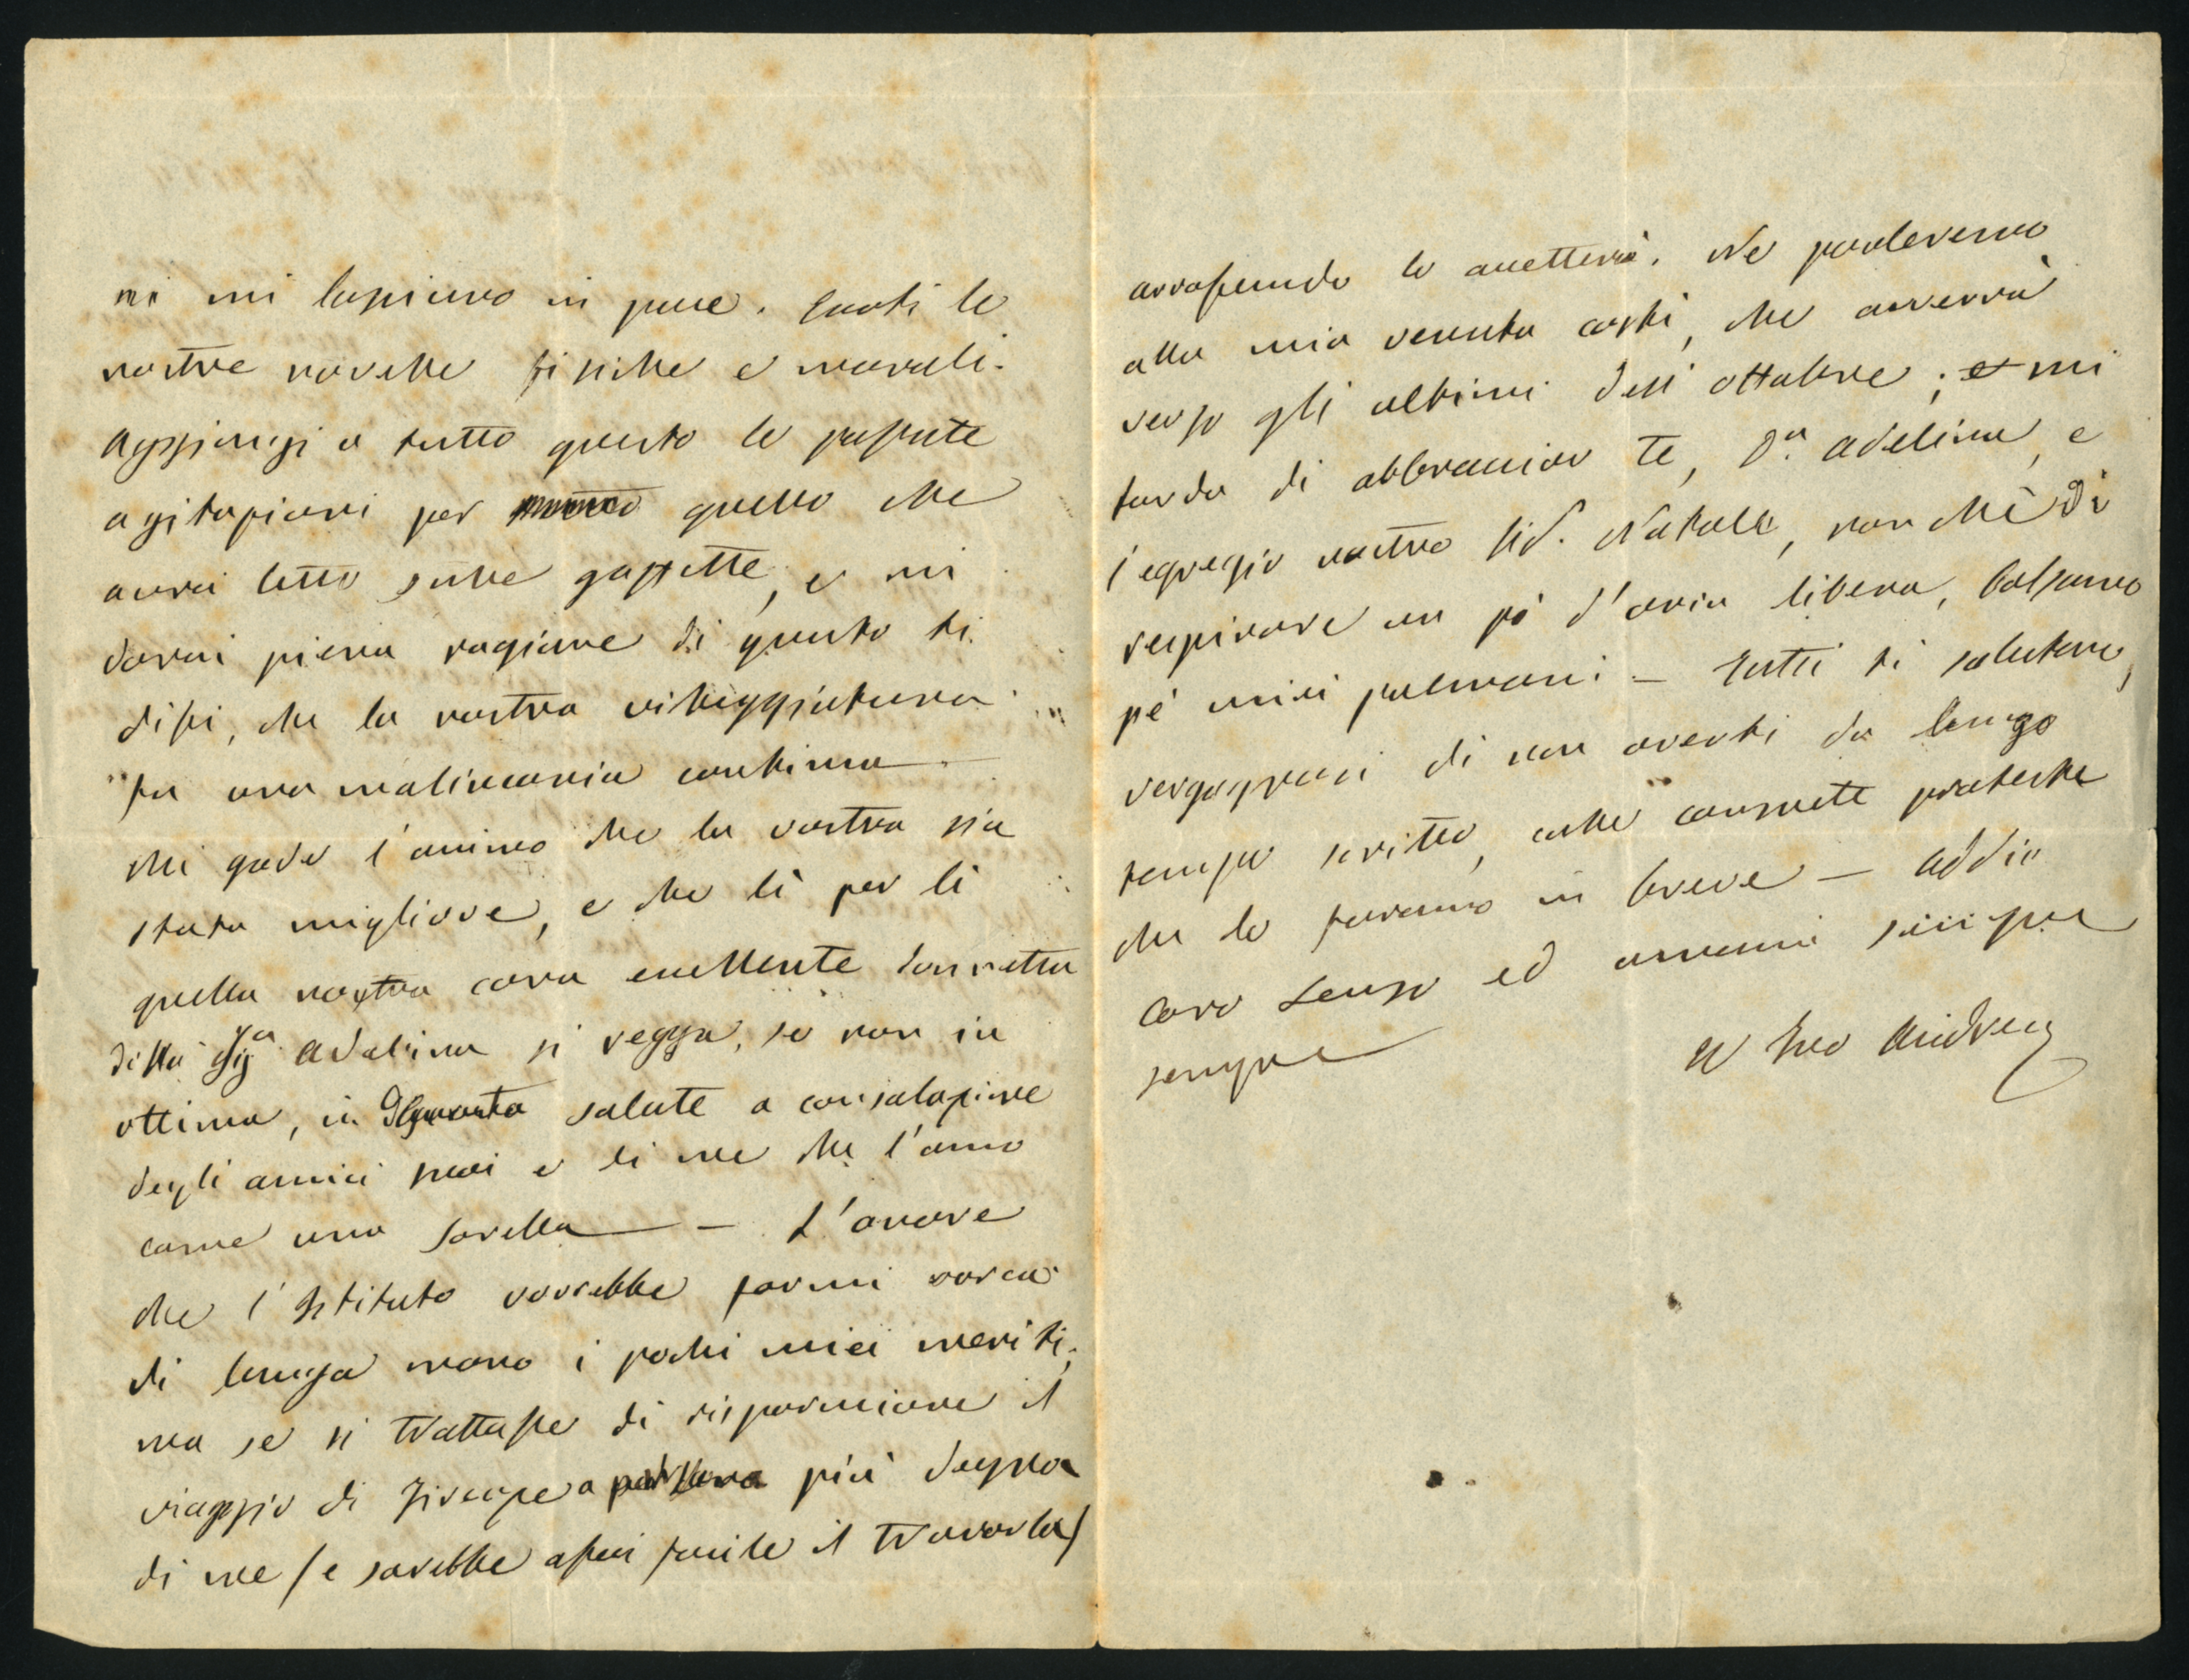 mi mi lasciano in pace. Eccoti le
nostre novelle fisiche e morali.
Aggiungi a tutto questo le passate
agitazioni per quello che
avrai letto sulle gazzette, e mi
darai piena ragione di quanto ti
dissi, che la nostra villeggiatura
fu una malinconia continua.
Mi gode l'animo che la vostra sia
stata migliore, e che lì per lì
quella nostra cara eccellente donnetta
della Sigª Adelina si regga, se non in
ottima, in discreta salute a consolazione
degli amici suoi e di me che l'amo
come una sorella — L'onore
che l'Istituto vorrebbe farmi varca
di lunga mano i pochi miei meriti;
ma se si trattasse di risparmiare il
viaggio di a persona più degna
di me (e sarebbe assai facile il trovarla)
arrossendo lo accetterei. Ne parleremo
alla mia venuta costì, che avverrà
verso gli ultimi dell'ottobre; e mi
tarda di abbracciar te, Dª Adelina, e
l'egregio nostro Sid. Natale, non chè di
respirare un pò d'aria libera, balsamo
pe' miei polmoni — Tutti ti salutano,
vergognosi di non averti da lungo
tempo scritto, colle consuete proteste
che lo faranno in breve — Addio
caro Renzo ed amami sempre
sempre
Il tuo Andrea